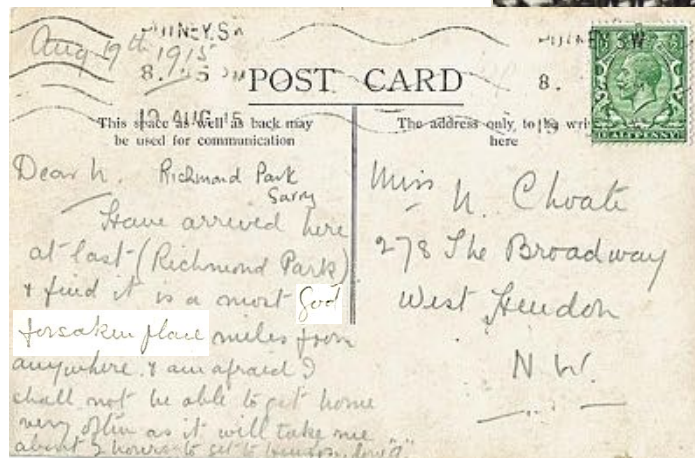 Aug 19th 1915
PUTNEY S.W
8.15 PM
19 AUG 15
POST CARD
This space as well as back may
be used for communication
The address only to be
here
HALFPENNY
Dear N. Richmond Park
Surry
Have arrived here
at last (Richmond Park)
& find it is a most God
forsaken place miles from
anywhere. & am afraid I
shall not be able to get home
very often as it will take me
about 2 hours to get to Hendon.
Miss N. Choate
278 The Broadway
West Hendon
N.W.